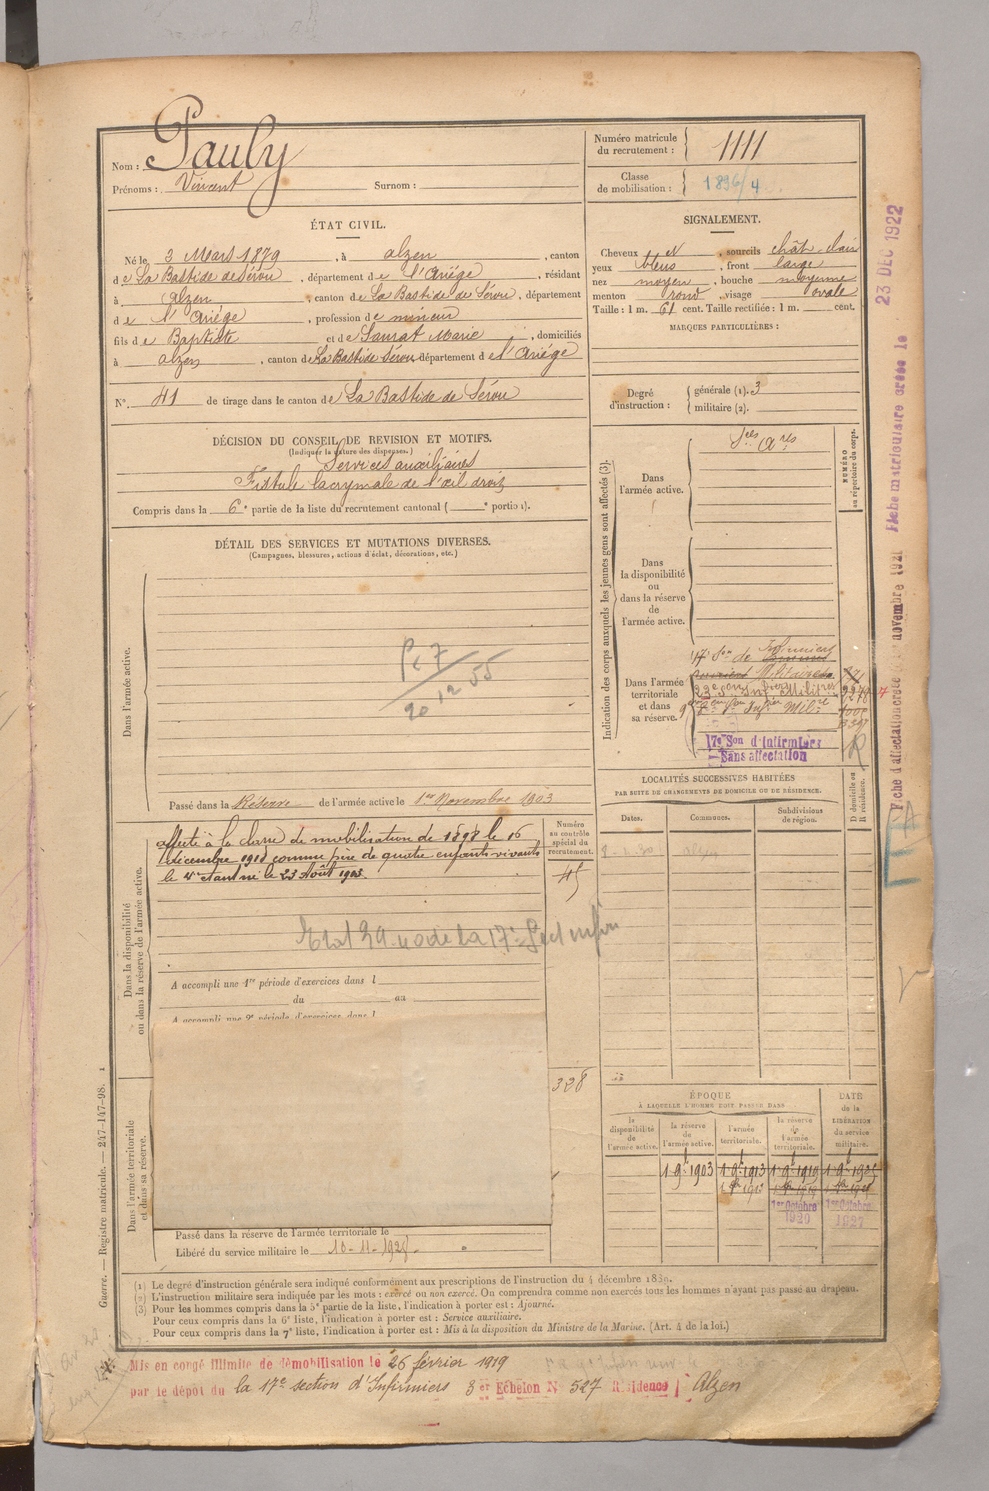 Nom : Pauly
Prénoms : Vincent Surnom :
Numéro matricule du recrutement : 1111
Classe de mobilisation : 1896/4
ÉTAT CIVIL.
Né le 3 Mars 1879, à alzen, canton
de La Bastide de Sérou, département de l'Ariége, résidant
à alzen, canton de La Bastide de Sérou, département
de l'Ariége, profession de mineur
fils de Baptiste et de Saurat Marie, domiciliés
à alzen, canton de La Bastide Sérou département de l'Ariége
N° 41 de tirage dans le canton de La Bastide de Sérou
SIGNALEMENT.
Cheveux et sourcils chât-clair
yeux bleus, front large
nez moyen, bouche moyenne
menton rond, visage ovale
Taille : 1 m. 61 cent. Taille rectifiée : 1 m. cent.
MARQUES PARTICULIÈRES :
Degré d'instruction : générale (1). 3
militaire (2).
DÉCISION DU CONSEIL DE REVISION ET MOTIFS.
(Indiquer la nature des dispenses.)
Services auxiliaires
Fistule lacrymale de l'œil droit
Compris dans la 6e partie de la liste du recrutement cantonal ( e portion).
DÉTAIL DES SERVICES ET MUTATIONS DIVERSES.
(Campagnes, blessures, actions d'éclat, décorations, etc.)
Dans l'armée active.
Passé dans la Réserve de l'armée active le 1er Novembre 1903
Dans la disponibilité ou dans la réserve de l'armée active.
affecté à la classe de mobilisation de 1898 le 16
décembre 1918 comme père de quatre enfants vivants
le 4e étant né le 23 Août 1903.
Numéro au contrôle spécial du recrutement.
45
A accompli une 1re période d'exercices dans l
du au
A accompli une 2e période d'exercices dans l
328
Dans l'armée territoriale et dans sa réserve.
Passé dans la réserve de l'armée territoriale le
Libéré du service militaire le 10-11-1928
Indication des corps auxquels les jeunes gens sont affectés (3).
NUMÉRO au répertoire du corps.
Dans l'armée active.
Dans la disponibilité ou dans la réserve de l'armée active.
Dans l'armée territoriale et dans sa réserve.
17e Son d'Infirmiers
Sans affectation
LOCALITÉS SUCCESSIVES HABITÉES
PAR SUITE DE CHANGEMENTS DE DOMICILE OU DE RÉSIDENCE.
Dates. Communes. Subdivisions de région. D domicile ou R résidence.
ÉPOQUE
À LAQUELLE L'HOMME DOIT PASSER DANS
la disponibilité de l'armée active. la réserve de l'armée active. l'armée territoriale. la réserve de l'armée territoriale. DATE de la LIBÉRATION du service militaire.
1 9bre 1903 1 9bre 1913 1 9bre 1919 1 9bre 1925
1er Octobre 1920 1er Octobre 1927
(1) Le degré d'instruction générale sera indiqué conformément aux prescriptions de l'instruction du 4 décembre 1889.
(2) L'instruction militaire sera indiquée par les mots : exercé ou non exercé. On comprendra comme non exercés tous les hommes n'ayant pas passé au drapeau.
(3) Pour les hommes compris dans la 5e partie de la liste, l'indication à porter est : Ajourné.
Pour ceux compris dans la 6e liste, l'indication à porter est : Service auxiliaire.
Pour ceux compris dans la 7e liste, l'indication à porter est : Mis à la disposition du Ministre de la Marine. (Art. 4 de la loi.)
Mis en congé illimité de démobilisation le 26 février 1919
par le dépôt du la 17e section d'Infirmiers 3 er Echelon N° 527 Résidence Alzen
Guerre. — Registre matricule. — 247-147-98.
Fiche matriculaire créée le 23 DEC 1922